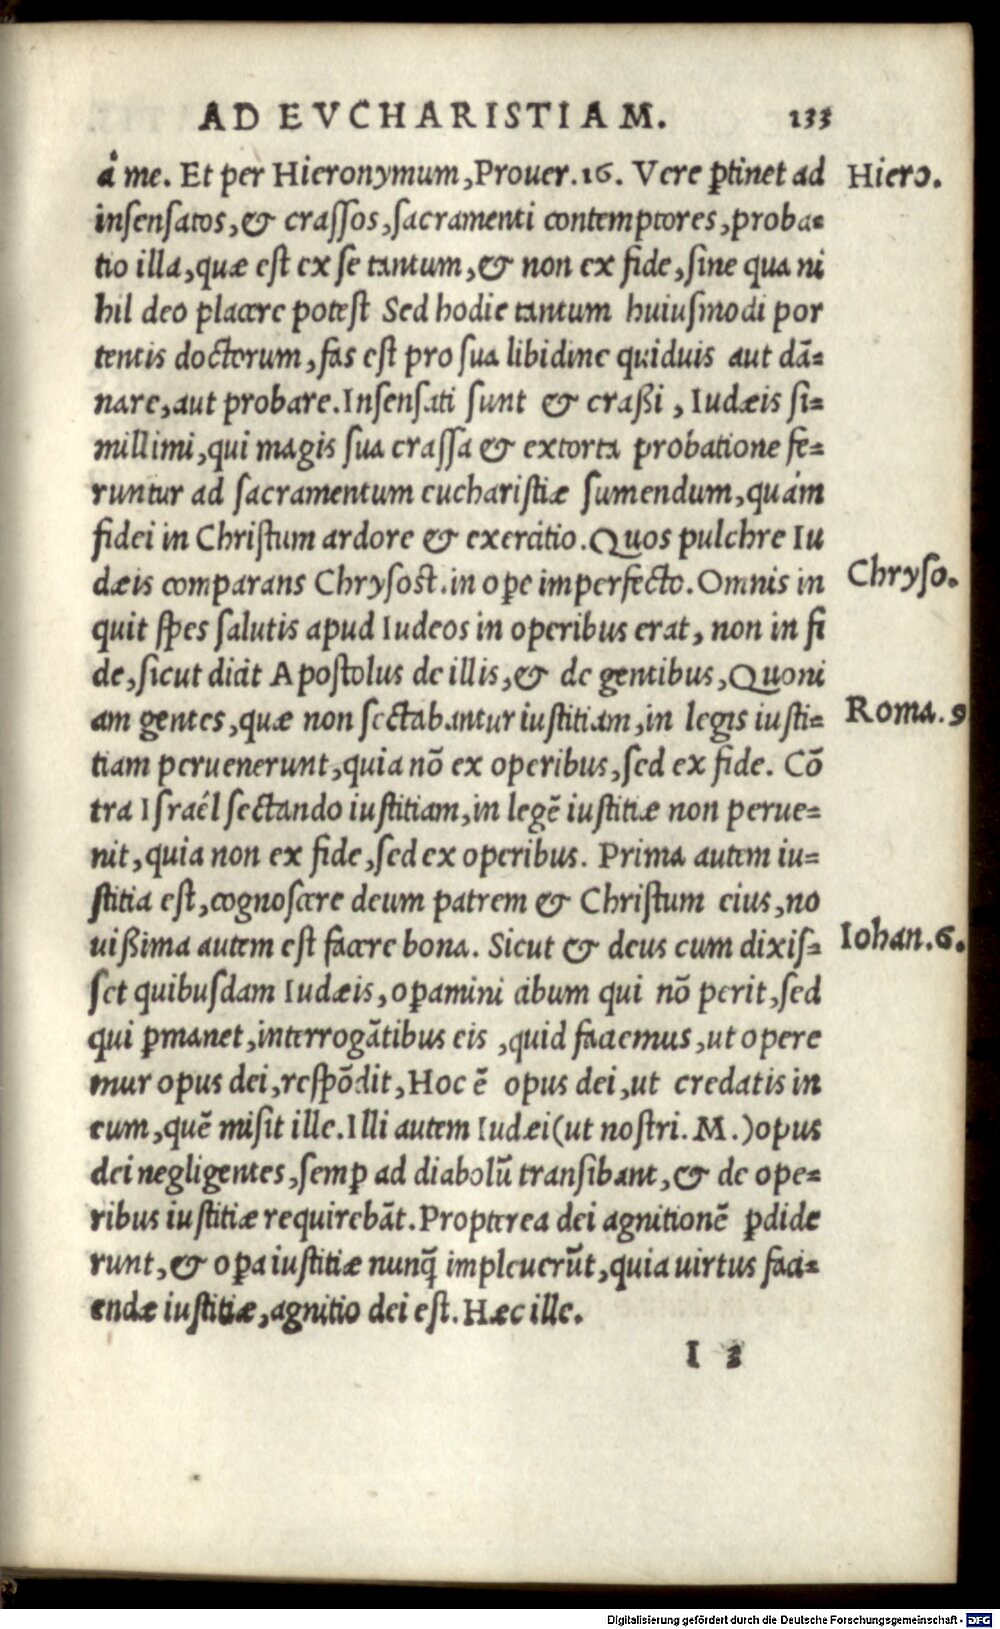 AD EVCHARISTIAM. 133
á me. Et per Hieronymum, Prouer. 16. Vere ꝑtinet ad
Hiero.
insensatos, & crassos, sacramenti contemptores, proba=
tio illa, quæ est ex se tantum, & non ex fide, sine qua ni
hil deo placere potest Sed hodie tantum huiusmodi por
tentis doctorum, fas est pro sua libidine quiduis aut dã=
nare, aut probare. Insensati sunt & craßi, Iudæis si=
millimi, qui magis sua crassa & extorta probatione fe=
runtur ad sacramentum eucharistiæ sumendum, quám
fidei in Christum ardore & exercitio. Quos pulchre Iu
dæis comparans Chrysost. in oꝑe imperfecto. Omnis in
Chryso.
quit spes salutis apud Iudeos in operibus erat, non in fi
de, sicut dicit Apostolus de illis, & de gentibus, Quoni
am gentes, quæ non sectabantur iustitiam, in legis iusti=
Roma. 9
tiam peruenerunt, quia nõ ex operibus, sed ex fide. Cõ
tra Israél sectando iustitiam, in legẽ iustitiæ non perue=
nit, quia non ex fide, sed ex operibus. Prima autem iu=
stitia est, cognoscere deum patrem & Christum eius, no
uißima autem est facere bona. Sicut & deus cum dixis=
Iohan. 6.
set quibusdam Iudæis, oꝑamini cibum qui nõ perit, sed
qui ꝑmanet, interrogãtibus eis, quid faciemus, ut opere
mur opus dei, respõdit, Hoc ẽ opus dei, ut credatis in
eum, quẽ misit ille. Illi autem Iudæi (ut nostri. M.) opus
dei negligentes, semꝑ ad diabolũ transibant, & de ope=
ribus iustitiæ requirebãt. Propterea dei agnitionẽ ꝑdide
runt, & oꝑa iustitiæ nunq̃ impleuerũt, quia uirtus faci=
endæ iustitiæ, agnitio dei est. Hæc ille.
I 3
Digitalisierung gefördert durch die Deutsche Forschungsgemeinschaft - DFG